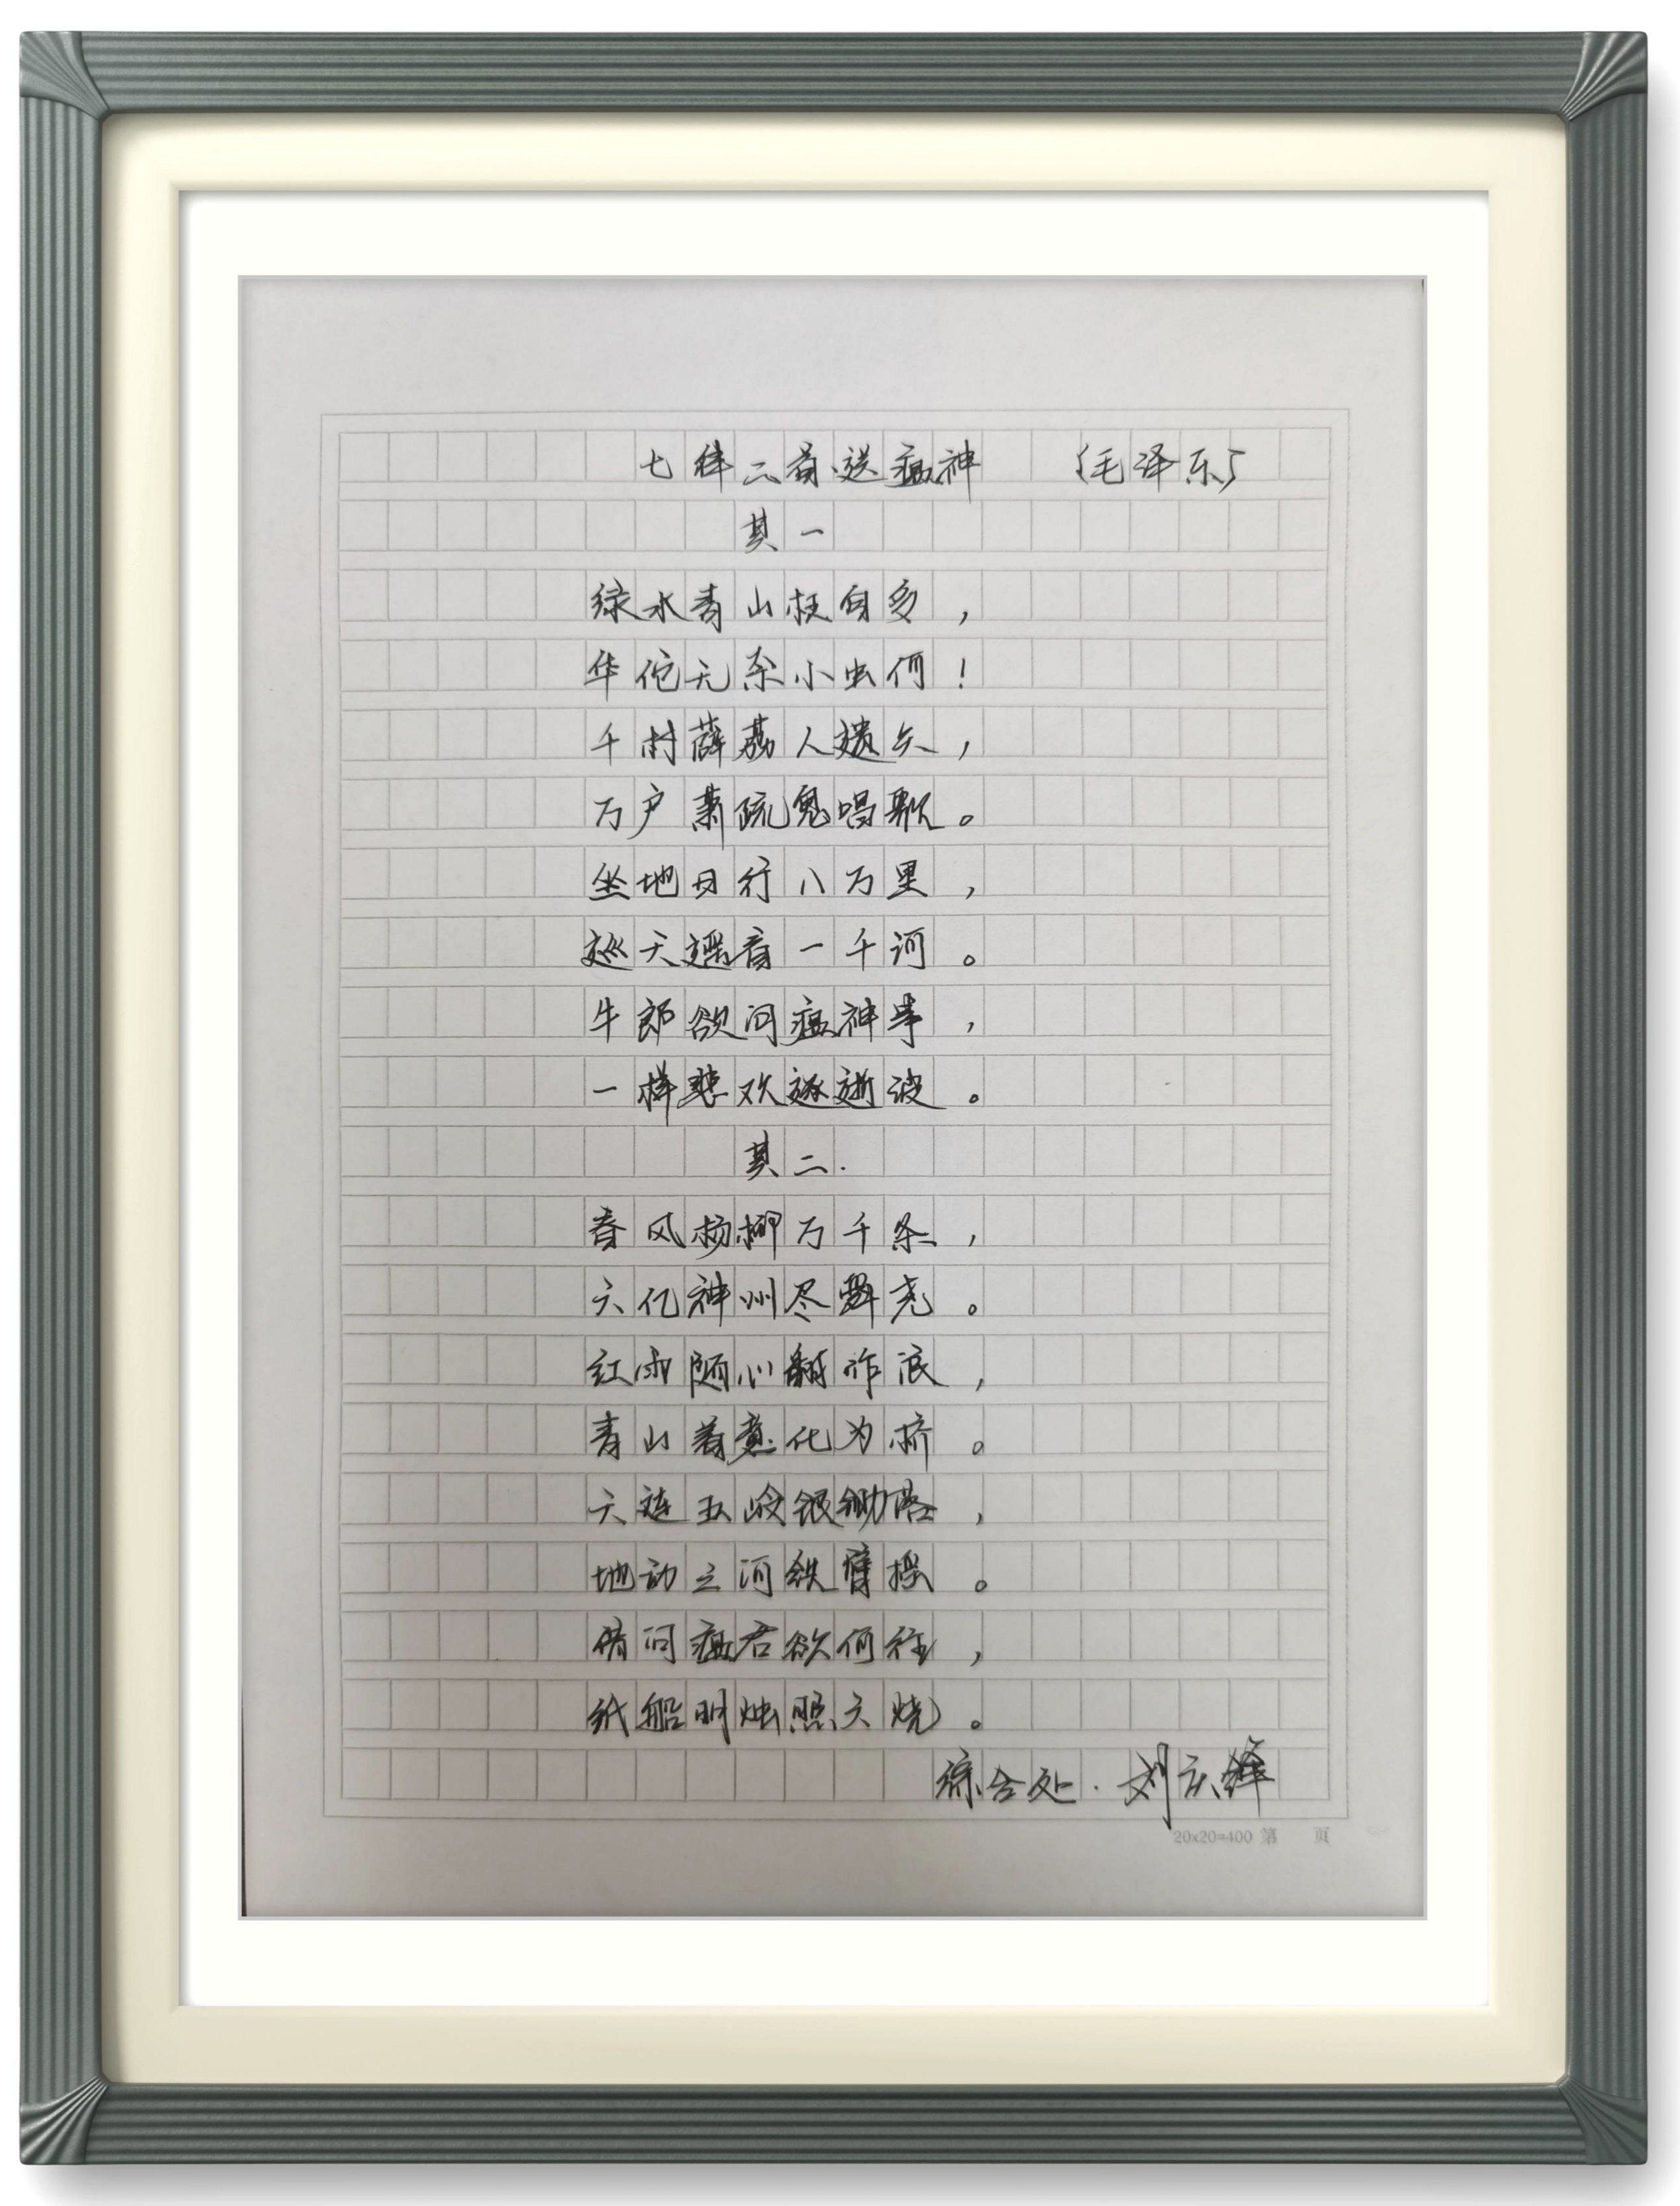 七律二首·送瘟神 (毛泽东)
其一
绿水青山枉自多，
华佗无奈小虫何！
千村薜荔人遗矢，
万户萧疏鬼唱歌。
坐地日行八万里，
巡天遥看一千河。
牛郎欲问瘟神事，
一样悲欢逐逝波。
其二.
春风杨柳万千条，
六亿神州尽舜尧。
红雨随心翻作浪，
青山着意化为桥。
天连五岭银锄落，
地动三河铁臂摇。
借问瘟君欲何往，
纸船明烛照天烧。
综合处·刘庆
20x20=400 第 页